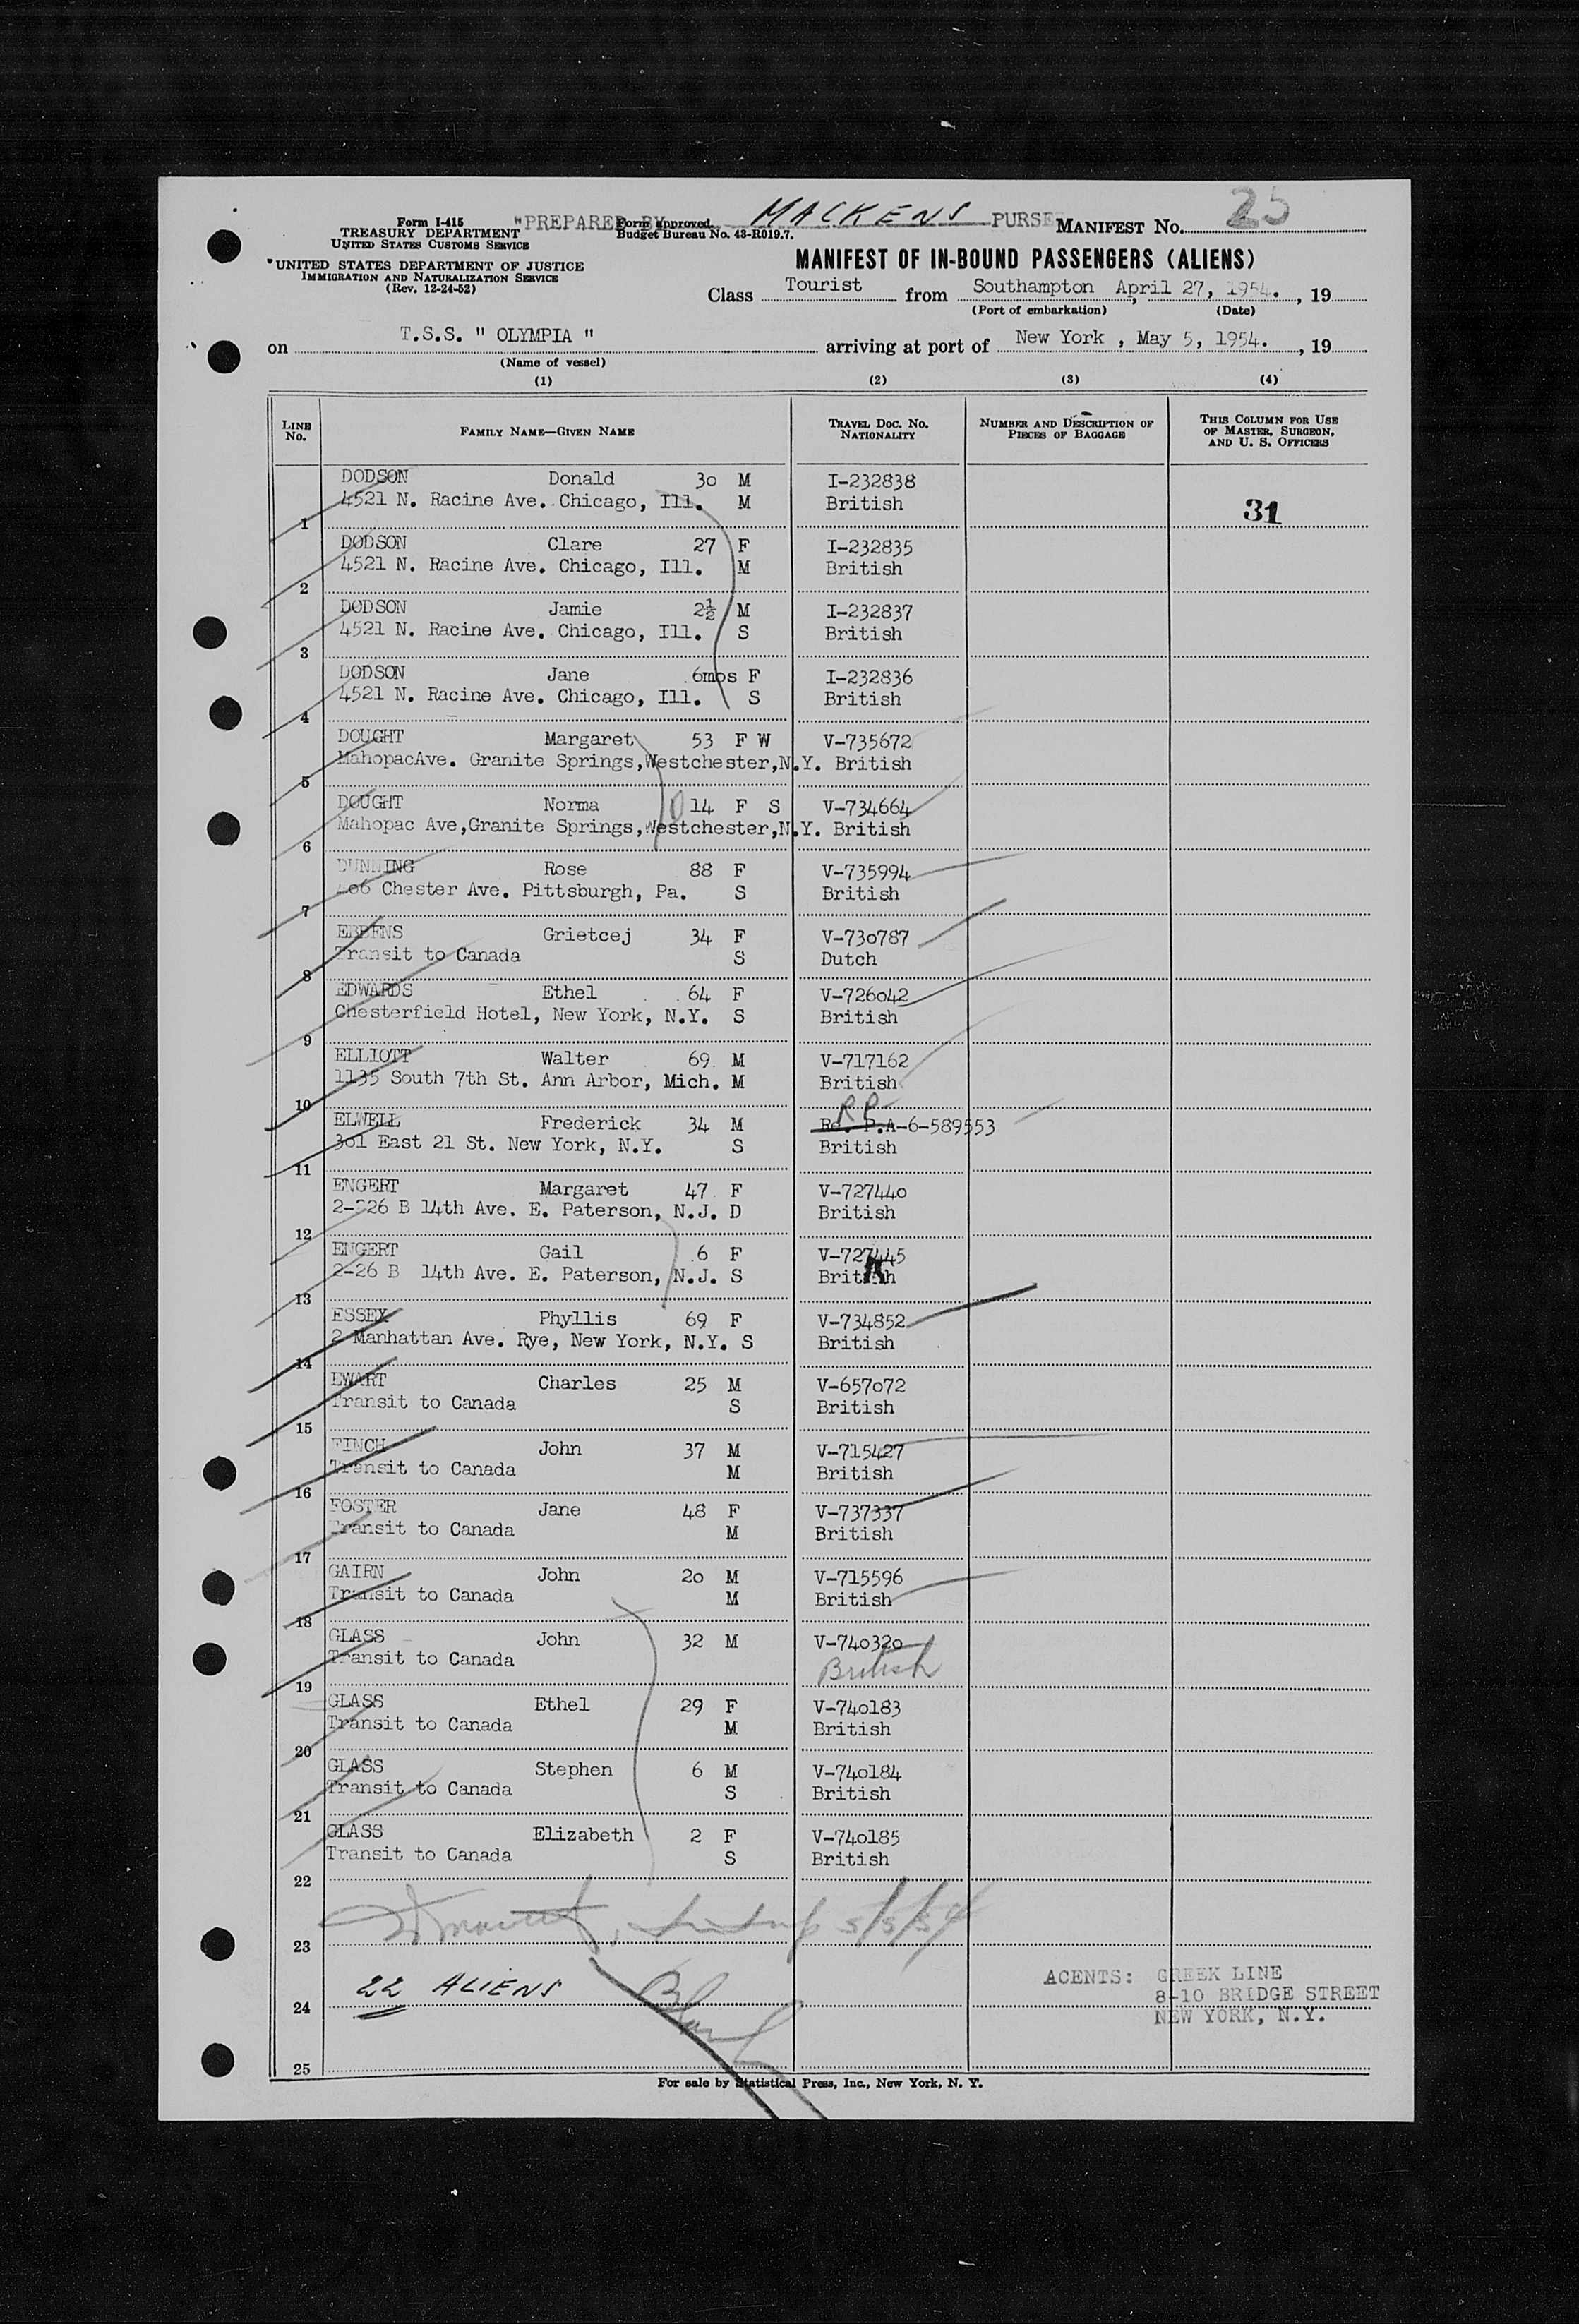 Form I-415
TREASURY DEPARTMENT
UNITED STATES CUSTOMS SERVICE
UNITED STATES DEPARTMENT OF JUSTICE
IMMIGRATION AND NATURALIZATION SERVICE
(Rev. 12-24-52)
"PREPARED BY MACKENS PURSE
Form approved.
Budget Bureau No. 43-R019.7.
MANIFEST No. 25
MANIFEST OF IN-BOUND PASSENGERS (ALIENS)
Class Tourist from Southampton April 27, 1954. , 19
(Port of embarkation) (Date)
on T.S.S. " OLYMPIA " arriving at port of New York , May 5, 1954. , 19
(Name of vessel)
(1) (2) (3) (4)
LINE No. FAMILY NAME—GIVEN NAME TRAVEL DOC. NO. NATIONALITY NUMBER AND DESCRIPTION OF PIECES OF BAGGAGE THIS COLUMN FOR USE OF MASTER, SURGEON, AND U. S. OFFICERS
DODSON Donald 30 M I-232838
4521 N. Racine Ave. Chicago, Ill. M British
1 31
DODSON Clare 27 F I-232835
4521 N. Racine Ave. Chicago, Ill. M British
2
DODSON Jamie 2½ M I-232837
4521 N. Racine Ave. Chicago, Ill. S British
3
DODSON Jane 6mos F I-232836
4521 N. Racine Ave. Chicago, Ill. S British
4
DOUGHT Margaret 53 F W V-735672
MahopacAve. Granite Springs,Westchester,N.Y. British
5
DOUGHT Norma 14 F S V-734664
Mahopac Ave,Granite Springs,Westchester,N.Y. British
6
DUNNING Rose 88 F V-735994
406 Chester Ave. Pittsburgh, Pa. S British
7
EBBENS Grietcej 34 F V-730787
Transit to Canada S Dutch
8
EDWARDS Ethel 64 F V-726042
Chesterfield Hotel, New York, N.Y. S British
9
ELLIOTT Walter 69 M V-717162
1135 South 7th St. Ann Arbor, Mich. M British
10 RP
ELWELL Frederick 34 M Rd. P.A-6-589553
301 East 21 St. New York, N.Y. S British
11
ENGERT Margaret 47 F V-727440
2-226 B 14th Ave. E. Paterson, N.J. D British
12
ENGERT Gail 6 F V-727445
2-26 B 14th Ave. E. Paterson, N.J. S British
13
ESSEX Phyllis 69 F V-734852
2 Manhattan Ave. Rye, New York, N.Y. S British
14
EWART Charles 25 M V-657072
Transit to Canada S British
15
FINCH John 37 M V-715427
Transit to Canada M British
16
FOSTER Jane 48 F V-737337
Transit to Canada M British
17
GAIRN John 20 M V-715596
Transit to Canada M British
18
GLASS John 32 M V-740320
Transit to Canada British
19
GLASS Ethel 29 F V-740183
Transit to Canada M British
20
GLASS Stephen 6 M V-740184
Transit to Canada S British
21
GLASS Elizabeth 2 F V-740185
Transit to Canada S British
22
5/5/54
23
22 ALIENS
24
25
AGENTS: GREEK LINE
8-10 BRIDGE STREET
NEW YORK, N.Y.
For sale by Statistical Press, Inc., New York, N. Y.